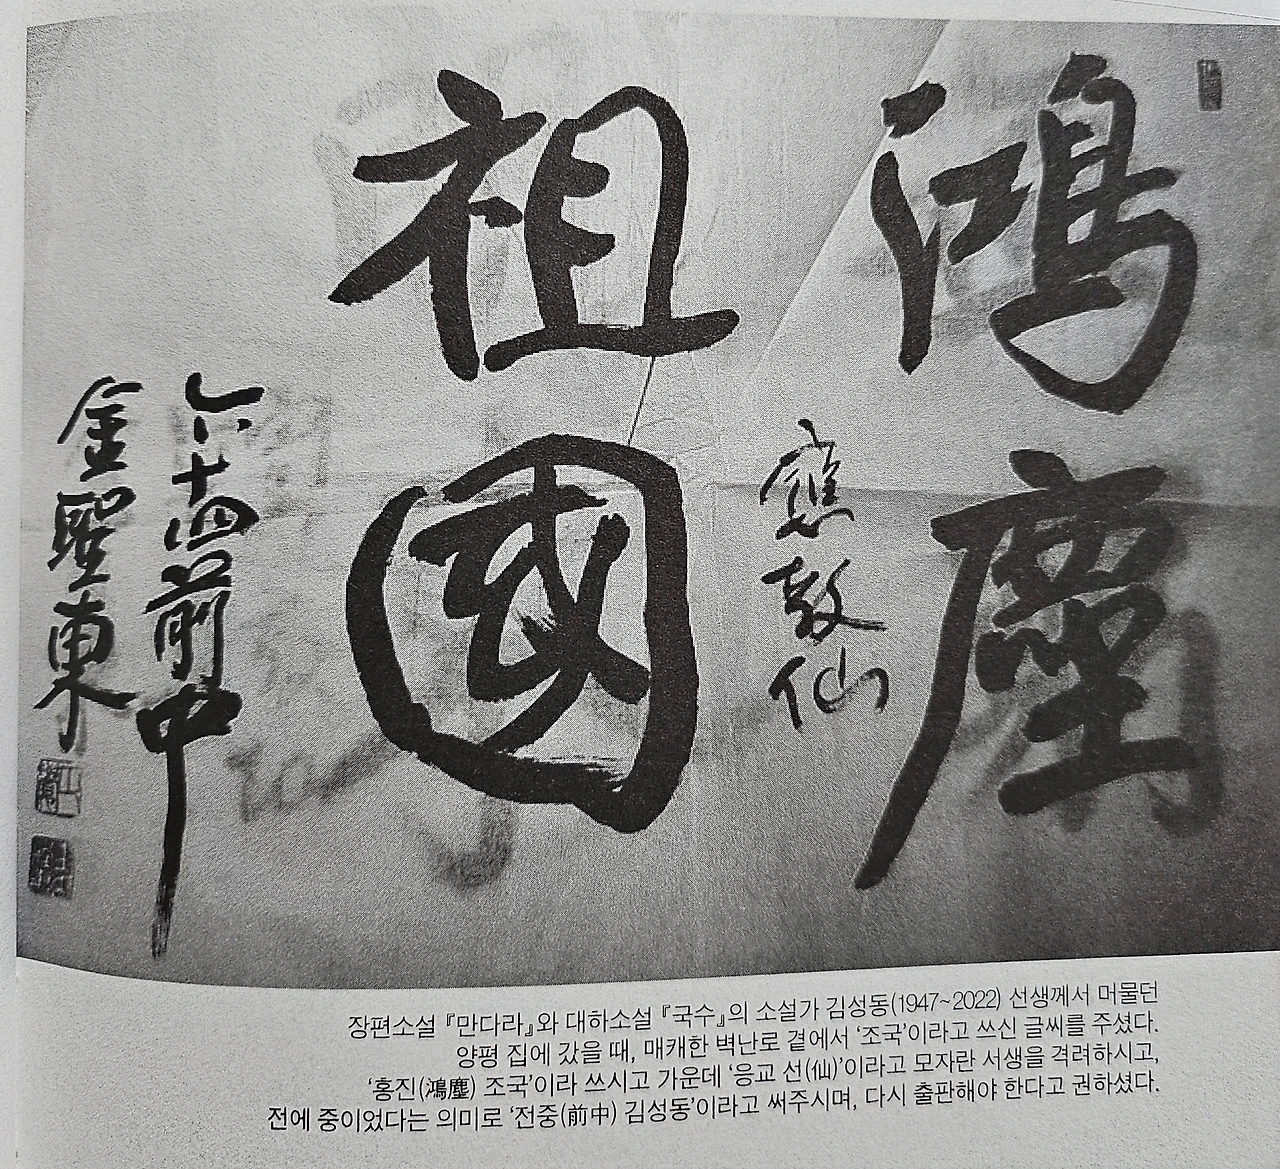 鴻塵
應敎仙
祖國
六十四前中
金聖東
장편소설 『만다라』와 대하소설 『국수』의 소설가 김성동(1947~2022) 선생께서 머물던
양평 집에 갔을 때, 매캐한 벽난로 곁에서 ‘조국’이라고 쓰신 글씨를 주셨다.
‘홍진(鴻塵) 조국’이라 쓰시고 가운데 ‘응교 선(仙)’이라고 모자란 서생을 격려하시고,
전에 중이었다는 의미로 ‘전중(前中) 김성동’이라고 써주시며, 다시 출판해야 한다고 권하셨다.